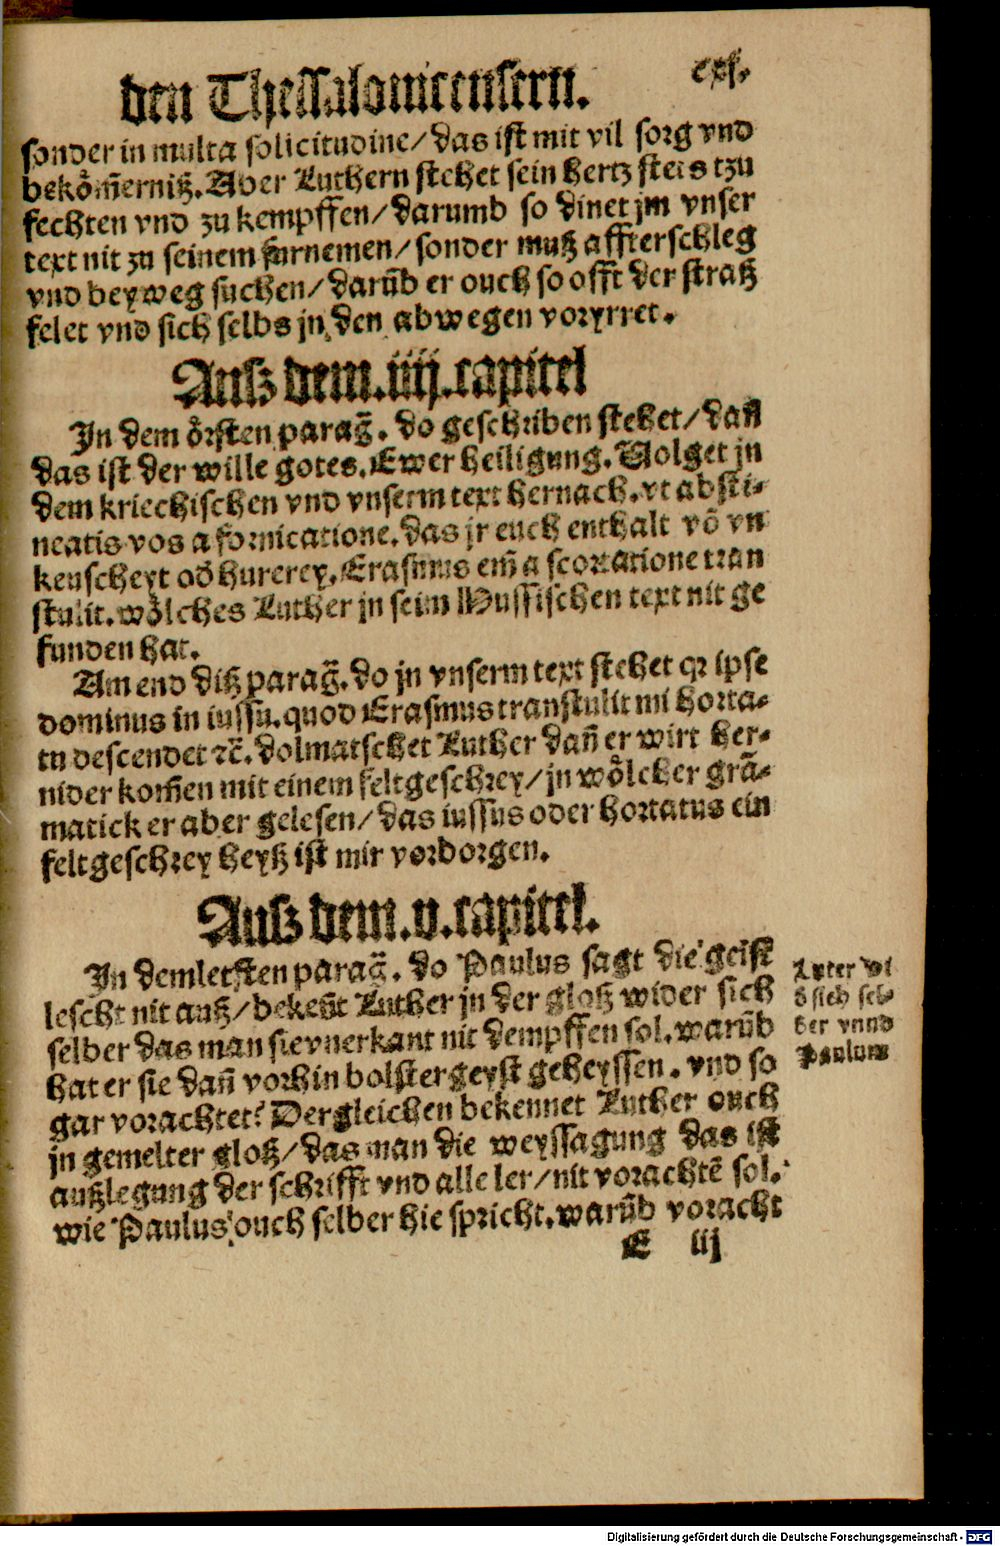 den Thessalonicensern.
sonder in multa solicitudine/ das ist mit vil sorg vnd
bekom̃ernitz. Aber Luthern stehet sein hertz stets tzu
fechten vnd zu kempffen/ darumb so dinet jm vnser
text nit zu seinem furnemen/ sonder mutz affterschleg
vnd beyweg suchen/ darūb er ouch so offt der stratz
felet vnd sich selbs jn den abwegen voryrret.
Ausz dem .iiij. capitel
In dem örsten parag̃. do geschriben stehet/ dañ
das ist der wille gotes. Ewer heiligung. Volget jn
dem kriechischen vnd vnserm text hernach. vt absti-
neatis vos a fornicatione. das jr euch enthalt vō vn
keuscheyt od̄ hurerey. Erasmus em̄ a scortatione tran
stulit. wölches Luther jn seim Hussischen text nit ge
funden hat.
Am end ditz parag̃. do jn vnserm text stehet qz ipse
dominus in iussu. quod Erasmus transtulit mi horta-
tu descendet ꝛc̄. dolmatschet Luther dañ er wirt her-
nider kom̃en mit einem feltgeschrey/ jn wölcher grā-
matick er aber gelesen/ das iussus oder hortatus ein
feltgeschrey heytz ist mir vorborgen.
Ausz dem .v. capitel.
In dem letsten parag̃. do Paulus sagt die geist
lescht nit autz/ bekeñt Luther jn der glotz wider sich
selber das man sie vnerkant nit dempffen sol. warūb
hat er sie dañ vorhin bolstergeyst geheyssen. vnd so
gar vorachtet? Dergleichen bekennet Luther ouch
jn gemelter glotz/ das man die weyssagung das ist
autzlegung der schrifft vnd alle ler/ nit vorachtē sol.
wie Paulus ouch selber hie spricht. warūb voracht
Luter wi
d sich sel-
ber vnnd
Paulum
E iij
Digitalisierung gefördert durch die Deutsche Forschungsgemeinschaft - DFG